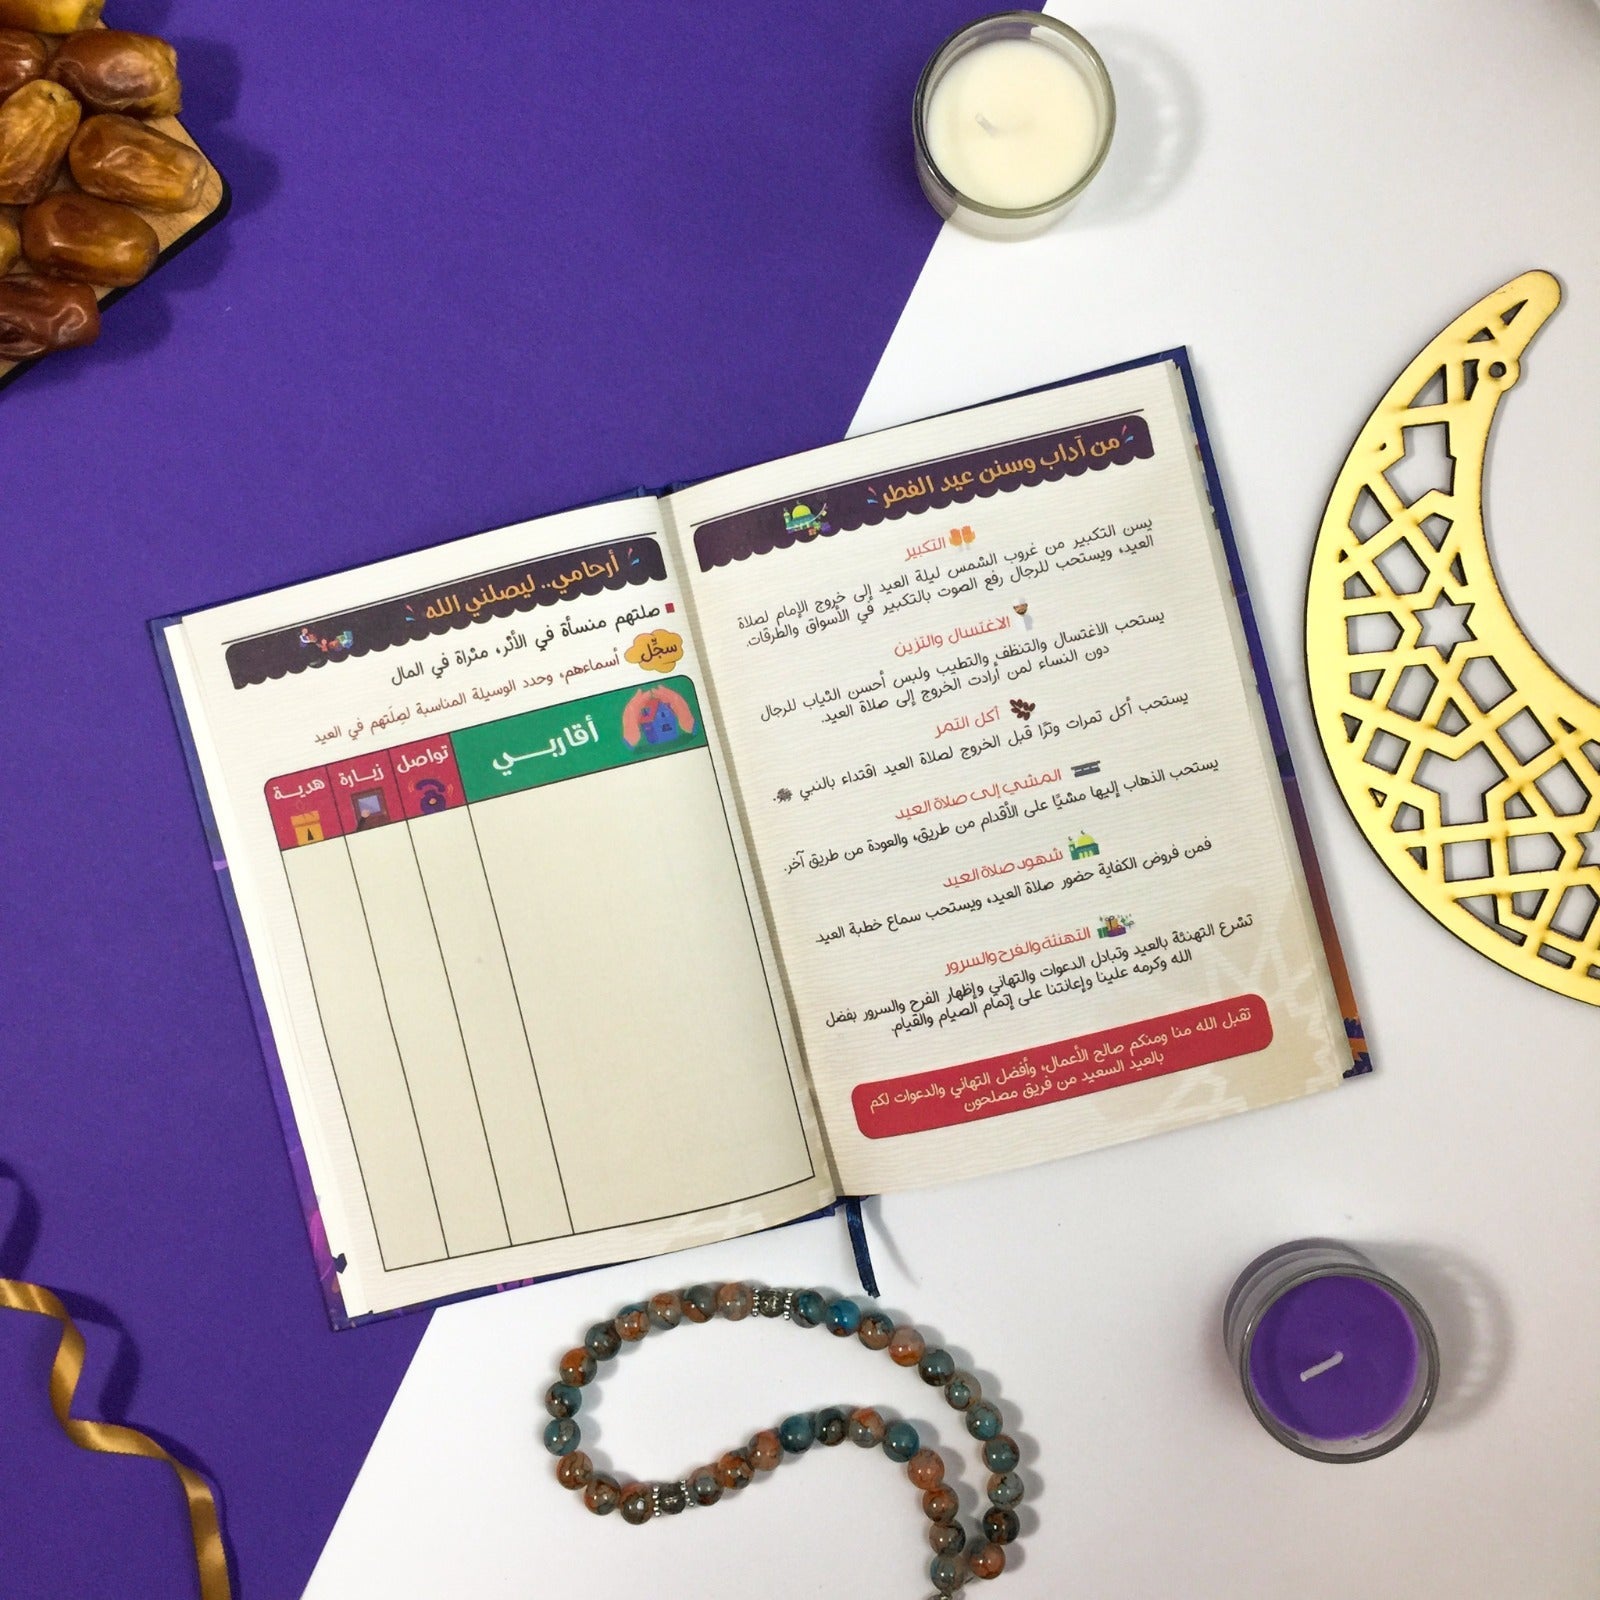 من آداب وسنن عيد الفطر
التكبير
يسن التكبير من غروب الشمس ليلة العيد إلى خروج الإمام لصلاة
العيد، ويستحب للرجال رفع الصوت بالتكبير في الأسواق والطرقات.
الاغتسال والتزين
يستحب الاغتسال والتنظف والتطيب ولبس أحسن الثياب للرجال
دون النساء لمن أرادت الخروج إلى صلاة العيد.
أكل التمر
يستحب أكل تمرات وترًا قبل الخروج لصلاة العيد اقتداء بالنبي ﷺ.
المشي إلى صلاة العيد
يستحب الذهاب إليها مشيًا على الأقدام من طريق، والعودة من طريق آخر.
شهود صلاة العيد
فمن فروض الكفاية حضور صلاة العيد، ويستحب سماع خطبة العيد.
التهنئة والفرح والسرور
تشرع التهنئة بالعيد وتبادل الدعوات والتهاني وإظهار الفرح والسرور بفضل
الله وكرمه علينا وإعانتنا على إتمام الصيام والقيام.
تقبل الله منا ومنكم صالح الأعمال، وأفضل التهاني والدعوات لكم
بالعيد السعيد من فريق مصلحون
أرحامي.. ليصلني الله
صلتهم منسأة في الأثر، مثراة في المال
سجِّل أسماءهم، وحدد الوسيلة المناسبة لصِلَتهم في العيد
أقاربي تواصل زيارة هدية